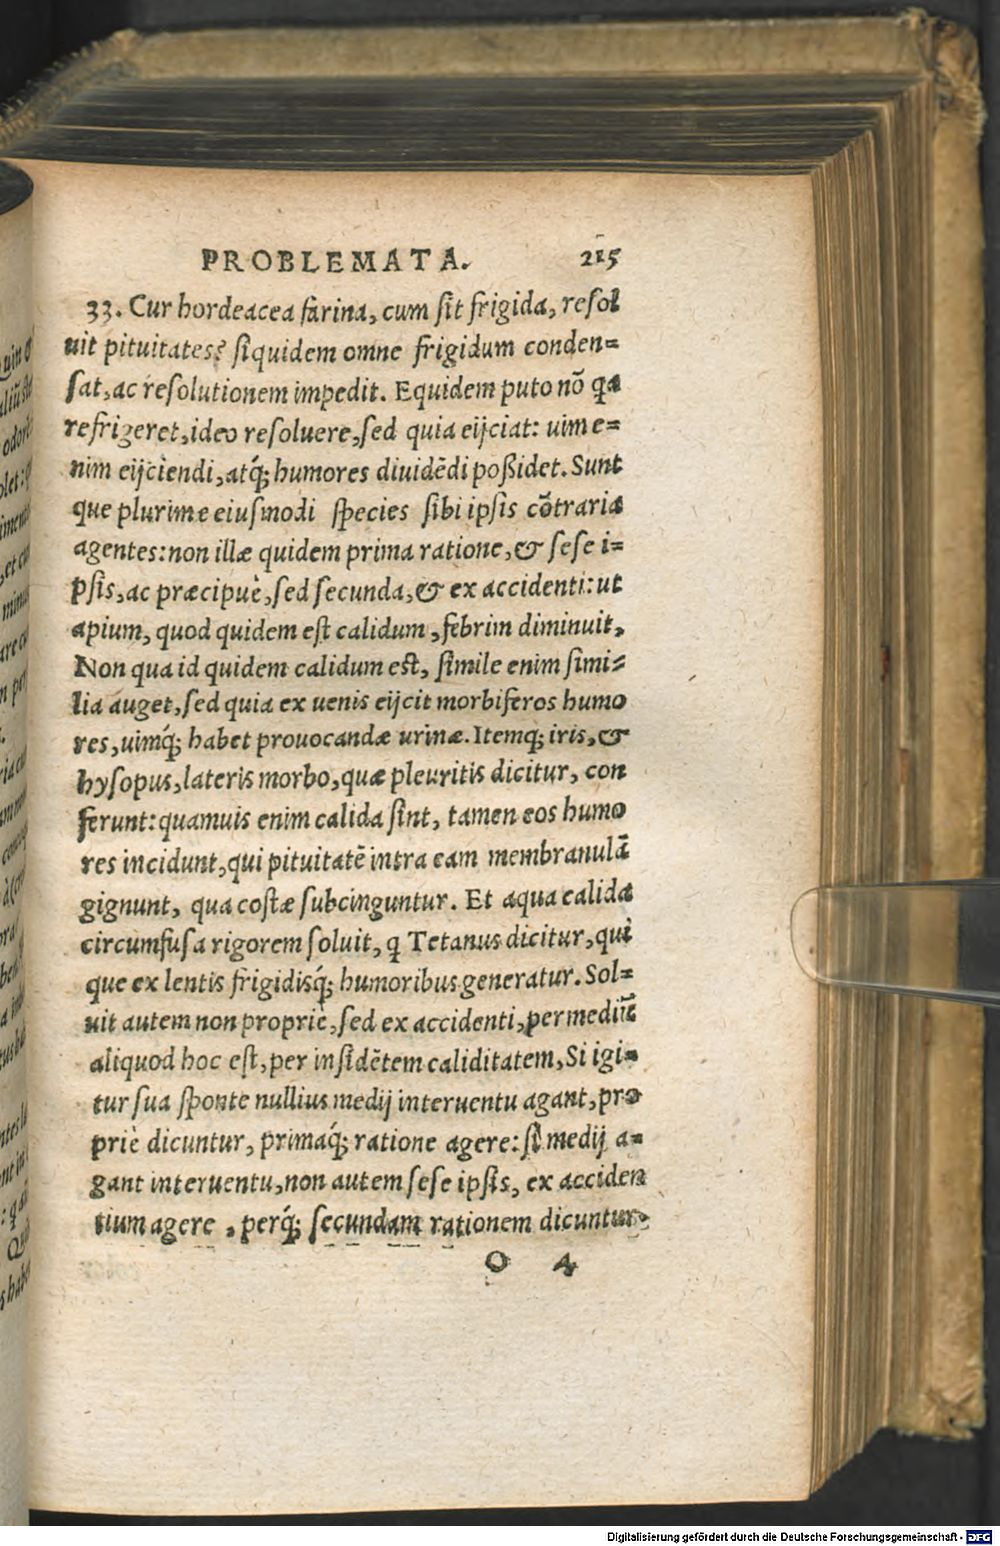 PROBLEMATA. 215
33. Cur hordeacea farina, cum sit frigida, resol
uit pituitates? siquidem omne frigidum conden=
sat, ac resolutionem impedit. Equidem puto nõ qa
refrigeret, ideo resoluere, sed quia eijciat: uim e=
nim eijciendi, atq́; humores diuidẽdi poßidet. Sunt
que plurimæ eiusmodi species sibi ipsis cõtraria
agentes: non illæ quidem prima ratione, & sese i=
psis, ac præcipuè, sed secunda, & ex accidenti: ut
apium, quod quidem est calidum, febrim diminuit,
Non qua id quidem calidum est, simile enim simi=
lia auget, sed quia ex uenis eijcit morbiferos humo
res, uimq́; habet prouocandæ urinæ. Itemq; iris, &
hysopus, lateris morbo, quæ pleuritis dicitur, con
ferunt: quamuis enim calida sint, tamen eos humo
res incidunt, qui pituitatẽ intra eam membranulã
gignunt, qua costæ subcinguntur. Et aqua calida
circumfusa rigorem soluit, q Tetanus dicitur, qui
que ex lentis frigidisq́; humoribus generatur. Sol=
uit autem non propriè, sed ex accidenti, per mediũ
aliquod hoc est, per insidẽtem caliditatem, Si igi=
tur sua sponte nullius medij interuentu agant, pro
priè dicuntur, primaq́; ratione agere: si medij a=
gant interuentu, non autem sese ipsis, ex acciden
tium agere, perq́; secundam rationem dicuntur.
O 4
uin
odor
Digitalisierung gefördert durch die Deutsche Forschungsgemeinschaft - DFG